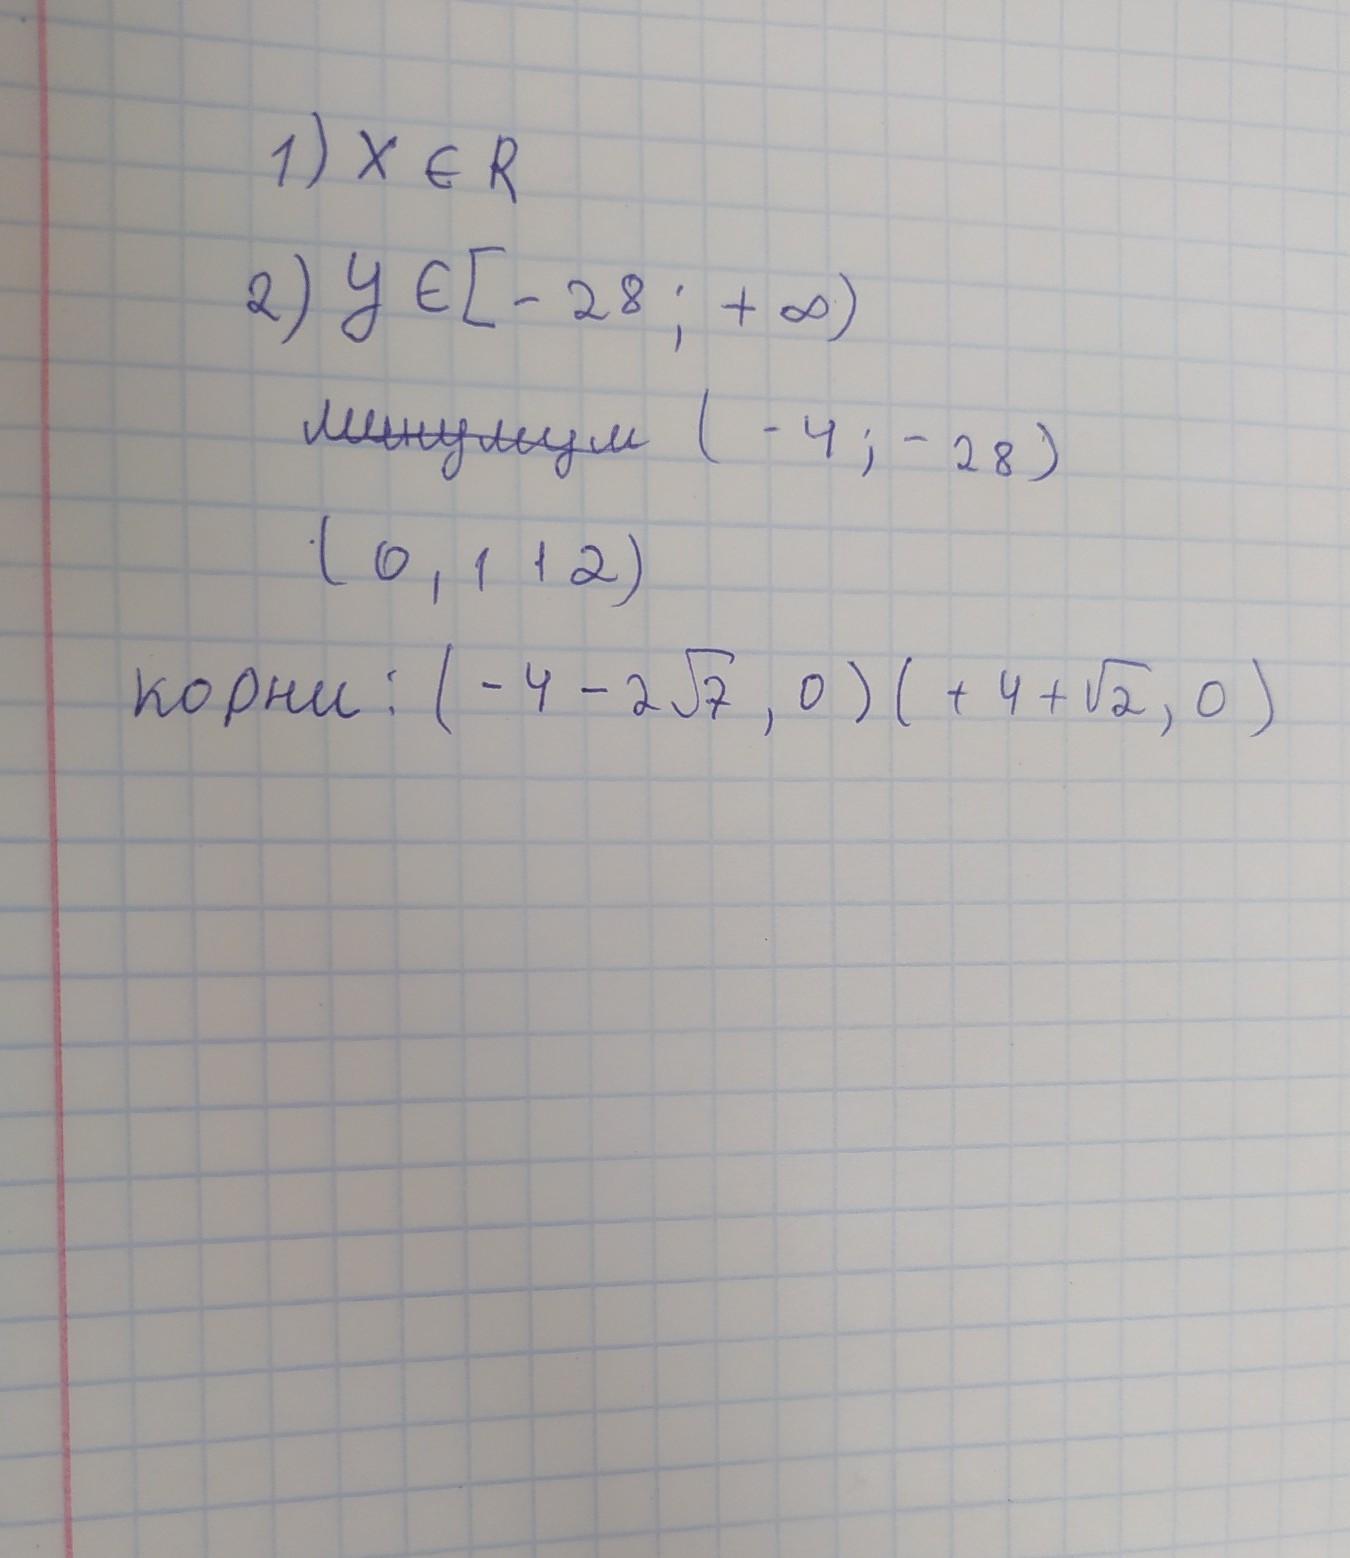 1) X ∈ R
2) У ∈ [ - 28 ; + ∞)
минумум ( - 4 ; - 28)
( 0 , 1 + 2)
корни : ( - 4 - 2√7 , 0 ) ( + 4 + √2 , 0 )